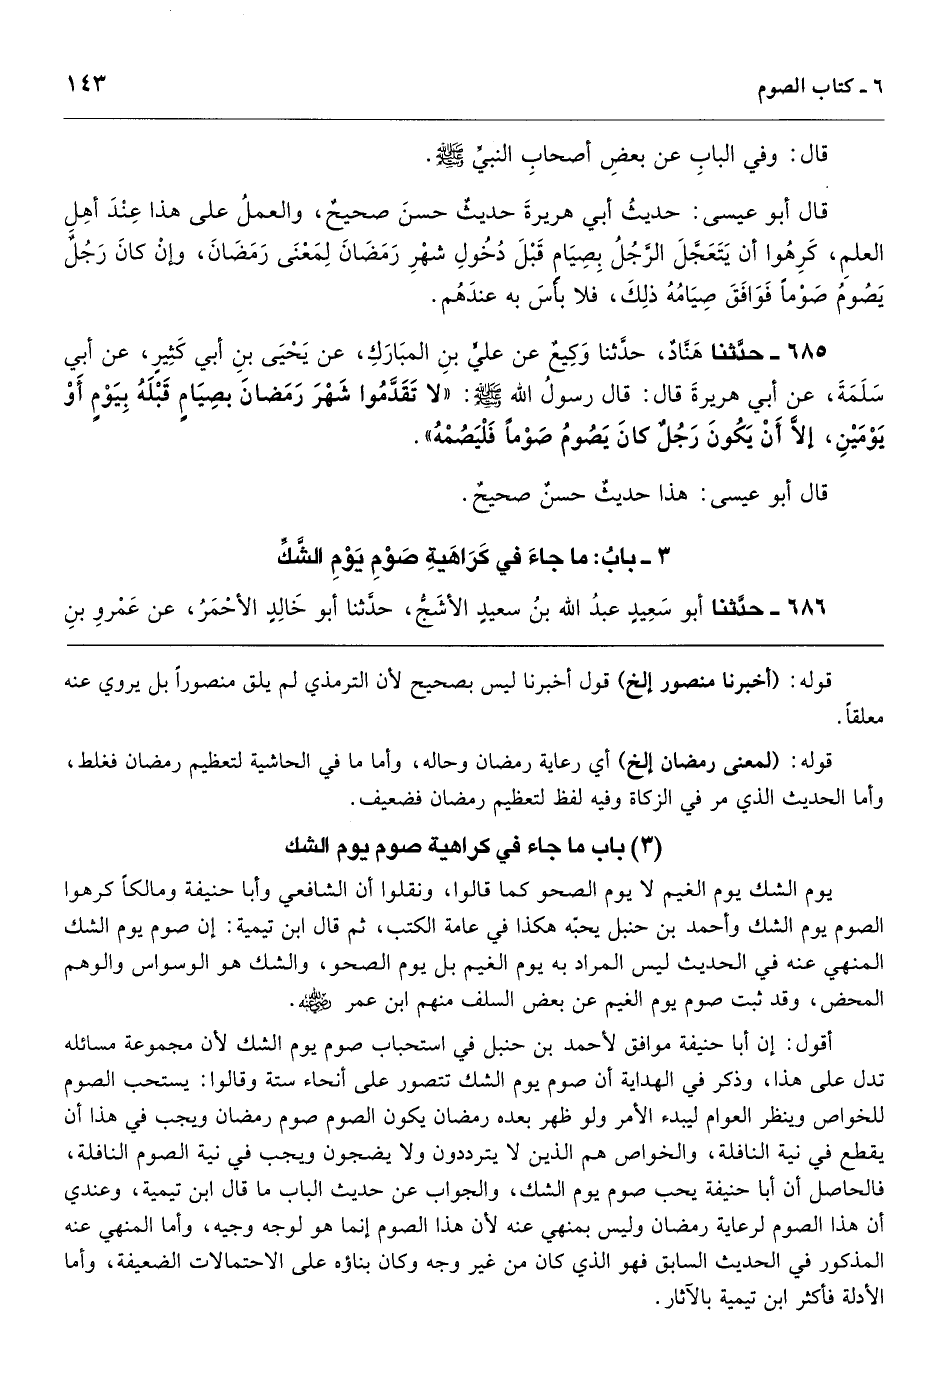 ٦ ـ كتاب الصوم ١٤٣
قال: وفي البابِ عن بعضِ أصحابِ النبيِّ ﷺ.
قال أبو عيسى: حديثُ أبي هريرةَ حديثٌ حسنَ صحيحٌ، والعملُ على هذا عِنْدَ أهلِ
العلمِ، كَرِهُوا أن يَتَعَجَّلَ الرَّجُلُ بِصِيَامِ قَبْلَ دُخُولِ شهْرِ رَمَضَانَ لِمَعْنَى رَمَضَانَ، وإنْ كانَ رَجُلٌ
يَصُومُ صَوْماً فَوَافَقَ صِيَامُهُ ذلِكَ، فلا بأسَ به عندَهُم.
٦٨٥ ـ حدَّثنا هَنَّادٌ، حدَّثنا وَكِيعٌ عن عليِّ بنِ المبَارَكِ، عن يَحْيَى بنِ أبي كَثِيرٍ، عن أبي
سَلَمَةَ، عن أبي هريرةَ قال: قال رسولُ الله ﷺ: «لا تَقَدَّمُوا شَهْرَ رَمَضانَ بصِيَامٍ قَبْلَهُ بِيَوْمٍ أَوْ
يَوْمَيْنِ، إلاَّ أَنْ يَكُونَ رَجُلٌ كانَ يَصُومُ صَوْماً فَلْيَصُمْهُ».
قال أبو عيسى: هذا حديثٌ حسنٌ صحيحٌ.
٣ ـ بابُ: ما جاءَ في كَرَاهَيةِ صَوْمِ يَوْمِ الشَّكِّ
٦٨٦ ـ حدَّثنا أبو سَعِيدٍ عبدُ الله بنُ سعيدٍ الأشَجُّ، حدَّثنا أبو خَالِدٍ الأحْمَرُ، عن عَمْروِ بنِ
قوله: (أخبرنا منصور إلخ) قول أخبرنا ليس بصحيح لأن الترمذي لم يلق منصوراً بل يروي عنه
معلقاً.
قوله: (لمعنى رمضان إلخ) أي رعاية رمضان وحاله، وأما ما في الحاشية لتعظيم رمضان فغلط،
وأما الحديث الذي مر في الزكاة وفيه لفظ لتعظيم رمضان فضعيف.
(٣) باب ما جاء في كراهية صوم يوم الشك
يوم الشك يوم الغيم لا يوم الصحو كما قالوا، ونقلوا أن الشافعي وأبا حنيفة ومالكاً كرهوا
الصوم يوم الشك وأحمد بن حنبل يحبّه هكذا في عامة الكتب، ثم قال ابن تيمية: إن صوم يوم الشك
المنهي عنه في الحديث ليس المراد به يوم الغيم بل يوم الصحو، والشك هو الوسواس والوهم
المحض، وقد ثبت صوم يوم الغيم عن بعض السلف منهم ابن عمر رضي الله عنه.
أقول: إن أبا حنيفة موافق لأحمد بن حنبل في استحباب صوم يوم الشك لأن مجموعة مسائله
تدل على هذا، وذكر في الهداية أن صوم يوم الشك تتصور على أنحاء ستة وقالوا: يستحب الصوم
للخواص وينظر العوام ليبدء الأمر ولو ظهر بعده رمضان يكون الصوم صوم رمضان ويجب في هذا أن
يقطع في نية النافلة، والخواص هم الذين لا يترددون ولا يضجون ويجب في نية الصوم النافلة،
فالحاصل أن أبا حنيفة يحب صوم يوم الشك، والجواب عن حديث الباب ما قال ابن تيمية، وعندي
أن هذا الصوم لرعاية رمضان وليس بمنهي عنه لأن هذا الصوم إنما هو لوجه وجيه، وأما المنهي عنه
المذكور في الحديث السابق فهو الذي كان من غير وجه وكان بناؤه على الاحتمالات الضعيفة، وأما
الأدلة فأكثر ابن تيمية بالآثار.